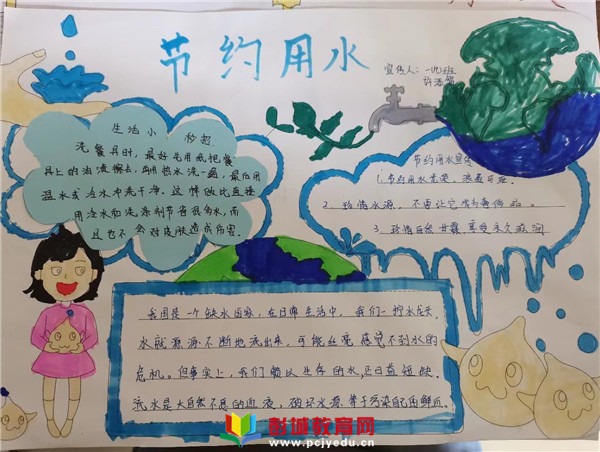 节约用水
宣传人：一(9)班
许
生活小妙招
洗餐具时，最好先用纸把餐
具上的油渍擦去，再用热水洗一遍，最后用
温水或冷水冲洗干净。这样做比直接
用冷水加洗涤剂节省很多水，而
且也不会对皮肤造成伤害。
节约用水宣传
1. 节约用水光荣，浪费可耻。
2. 珍惜水源，不要让它成为奢侈品。
3. 珍惜自然甘露，享受永久滋润
我国是一个缺水国家，在日常生活中，我们一拧水龙头，
水就源源不断地流出来，可能丝毫感觉不到水的
危机。但事实上，我们赖以生存的水，正日益短缺
水是大自然不息的血液，破坏水源，等于污染自己的鲜血。
彭城教育网
www.pcjyedu.cn